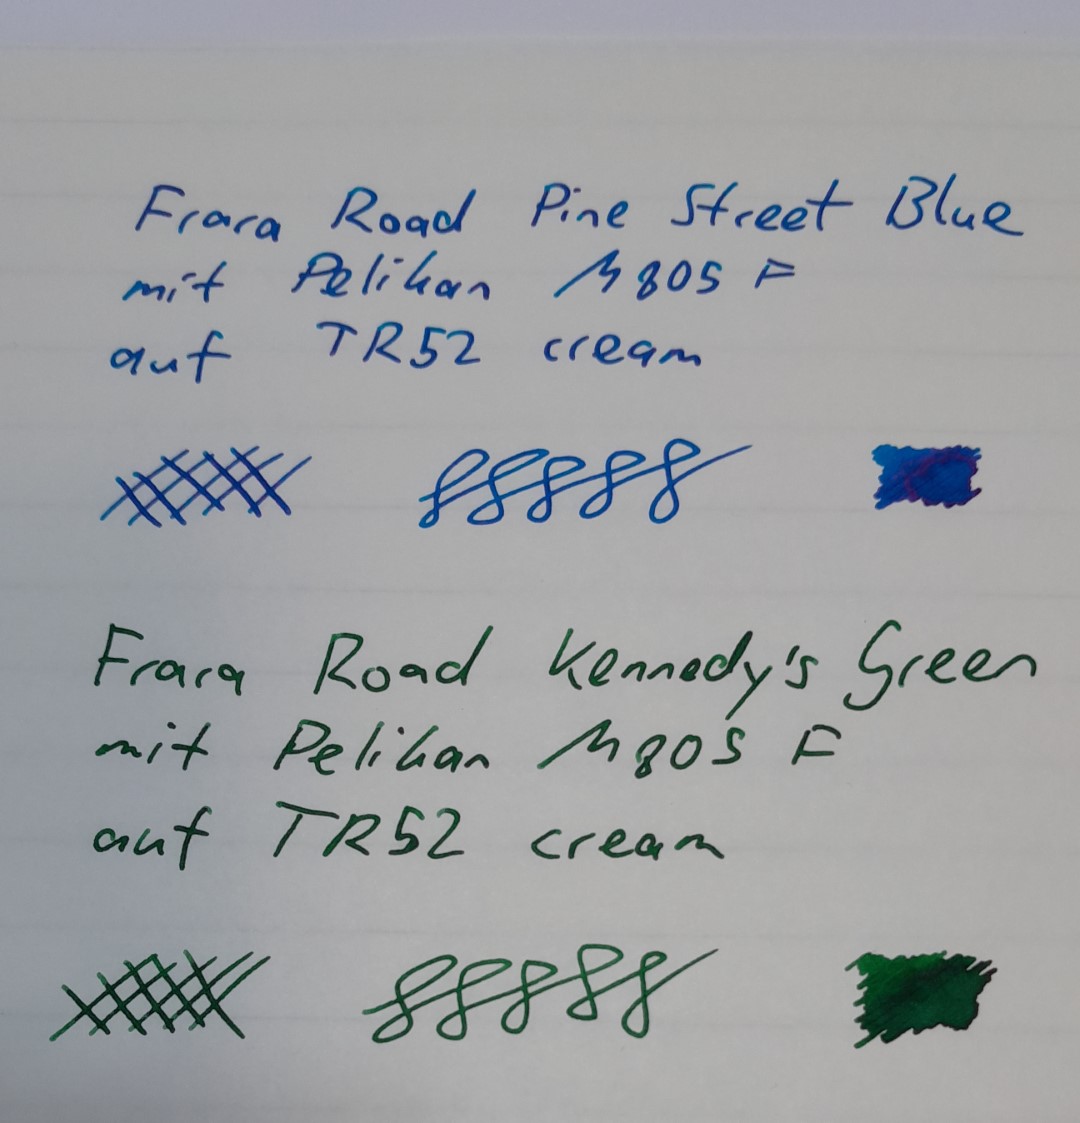 Frara Road Pine Street Blue
mit Pelikan M805 F
auf TR52 cream
Frara Road Kennedy's Green
mit Pelikan M805 F
auf TR52 cream